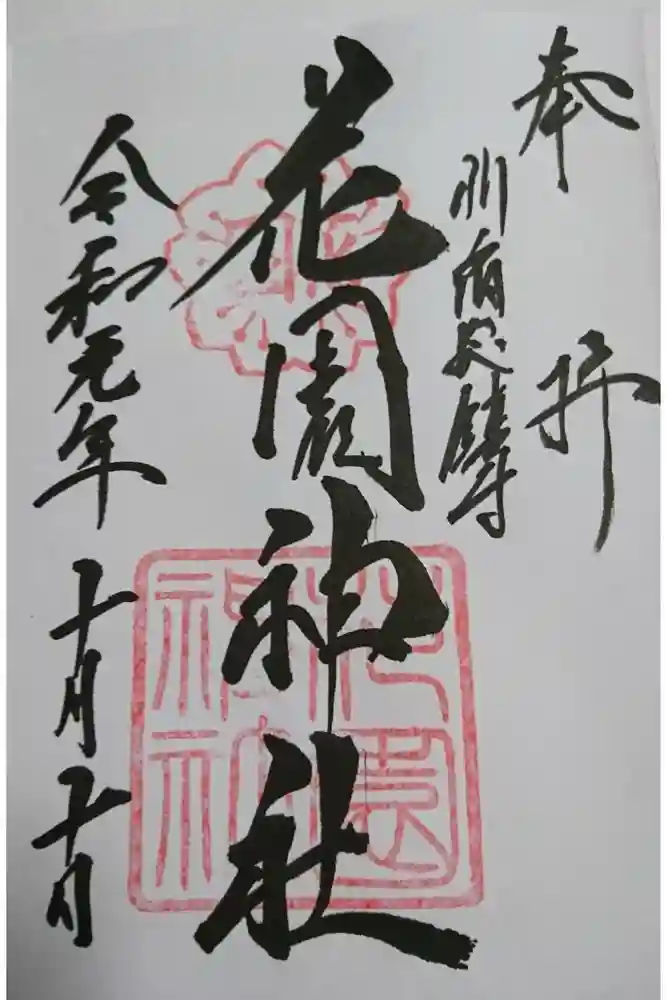 奉拝
鎮守
花園神社
令和元年十月十日
花園
神社